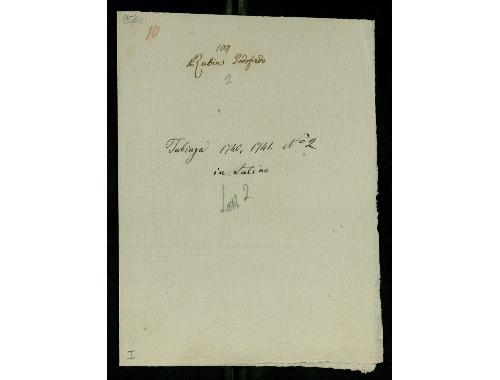 10
109
Rubin Godofredo
2
Tubinga 1740, 1741. Nº 2
in Latino
Lett 2
I